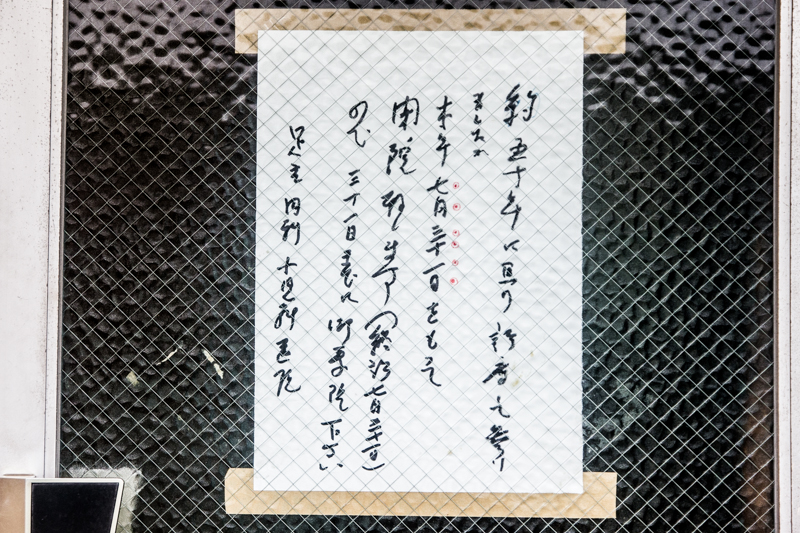 約五十年に亘り診療を参り
ましたが
本年七月三十一日をもって
閉院致します(終診七月三十一日)
ので 三十一日までに御来院下さい
内科小児科医院